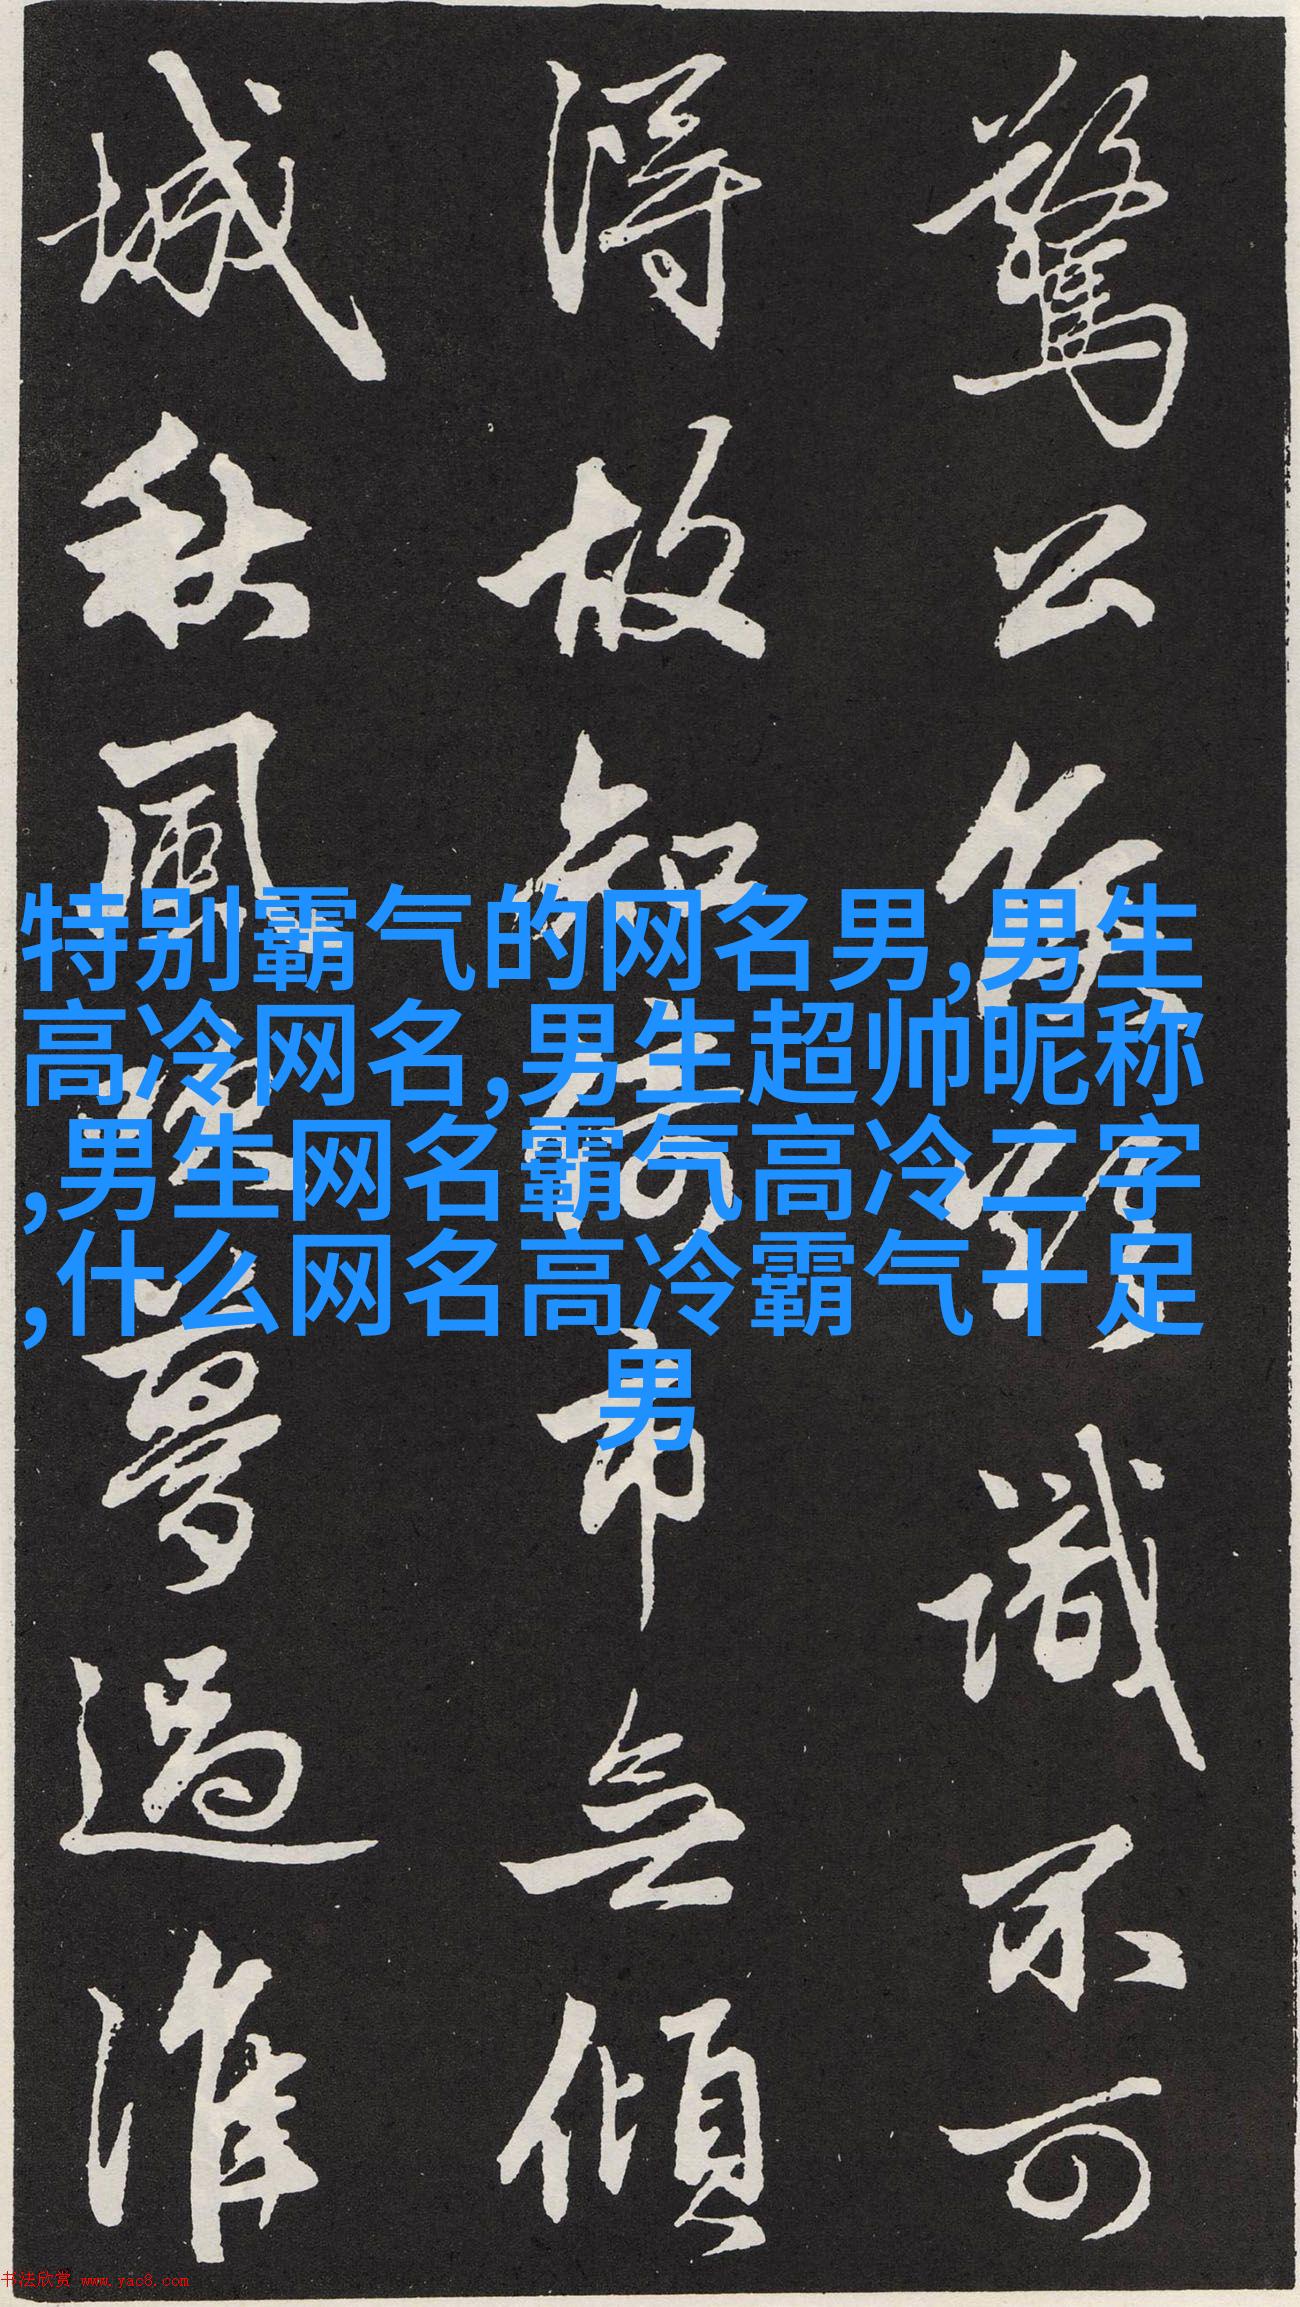 驚公侯識不可
得故知市無傾
城秋風夢過淮
特别霸气的网名男,男生
高冷网名,男生超帅昵称
,男生网名霸气高冷二字
,什么网名高冷霸气十足
男
书法欣赏 www.yac8.com